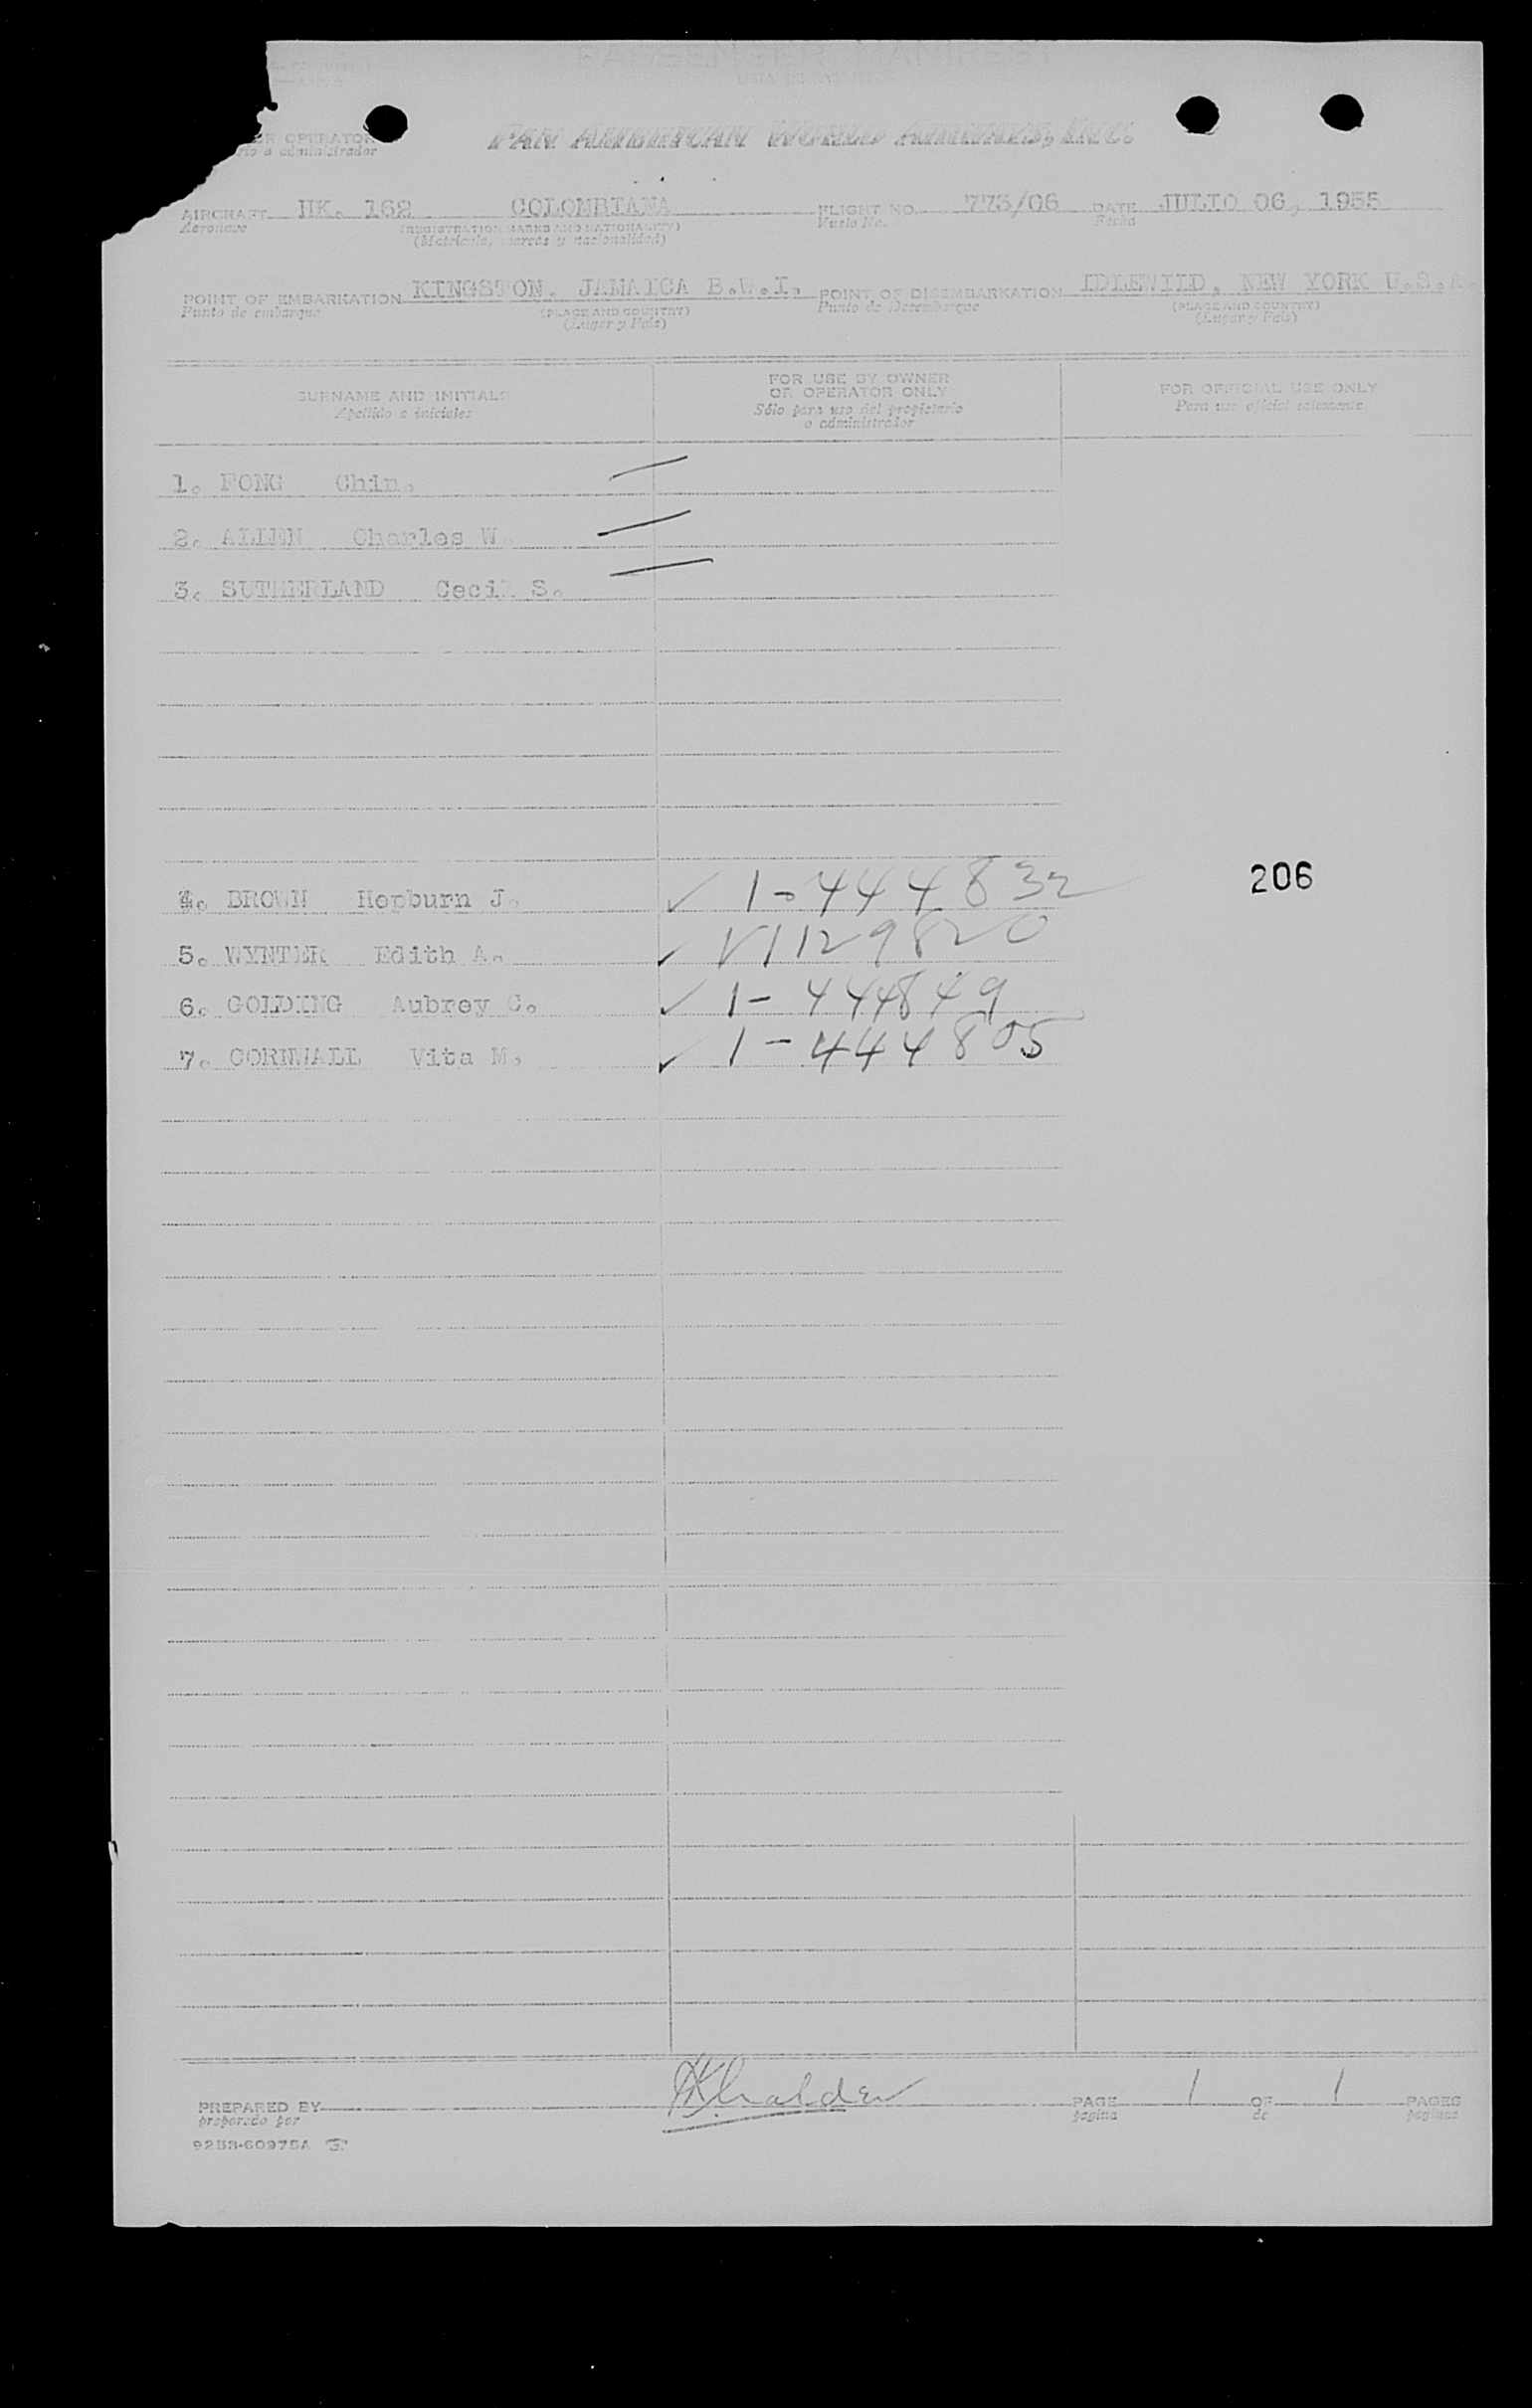 PASSENGER MANIFEST
OR OPERATOR PAN AMERICAN WORLD AIRWAYS, INC.
rio o administrador
AIRCRAFT HK. 162 COLOMBIANA FLIGHT NO. 773/06 DATE JULIO 06, 1955
Aeronave (REGISTRATION MARKS AND NATIONALITY) Vuelo No. Fecha
(Matrícula, marcas y nacionalidad)
POINT OF EMBARKATION KINGSTON. JAMAICA B.W.I. POINT OF DISEMBARKATION IDLEWILD, NEW YORK U.S.A.
Punto de embarque (PLACE AND COUNTRY) Punto de Desembarque (PLACE AND COUNTRY)
(Lugar y País) (Lugar y País)
SURNAME AND INITIALS FOR USE BY OWNER OR OPERATOR ONLY FOR OFFICIAL USE ONLY
Apellido e iniciales Sólo para uso del propietario o administrador Para uso oficial solamente
1. FONG Chin.
2. ALLEN Charles W.
3. SUTHERLAND Cecil S.
206
4. BROWN Hepburn J. ✓ 1-444832
5. WYNTER Edith A. ✓ V1129820
6. GOLDING Aubrey C. ✓ 1-444849
7. CORNWALL Vita M. ✓ 1-444805
PREPARED BY PAGE 1 OF 1 PAGES
preparado por página de páginas